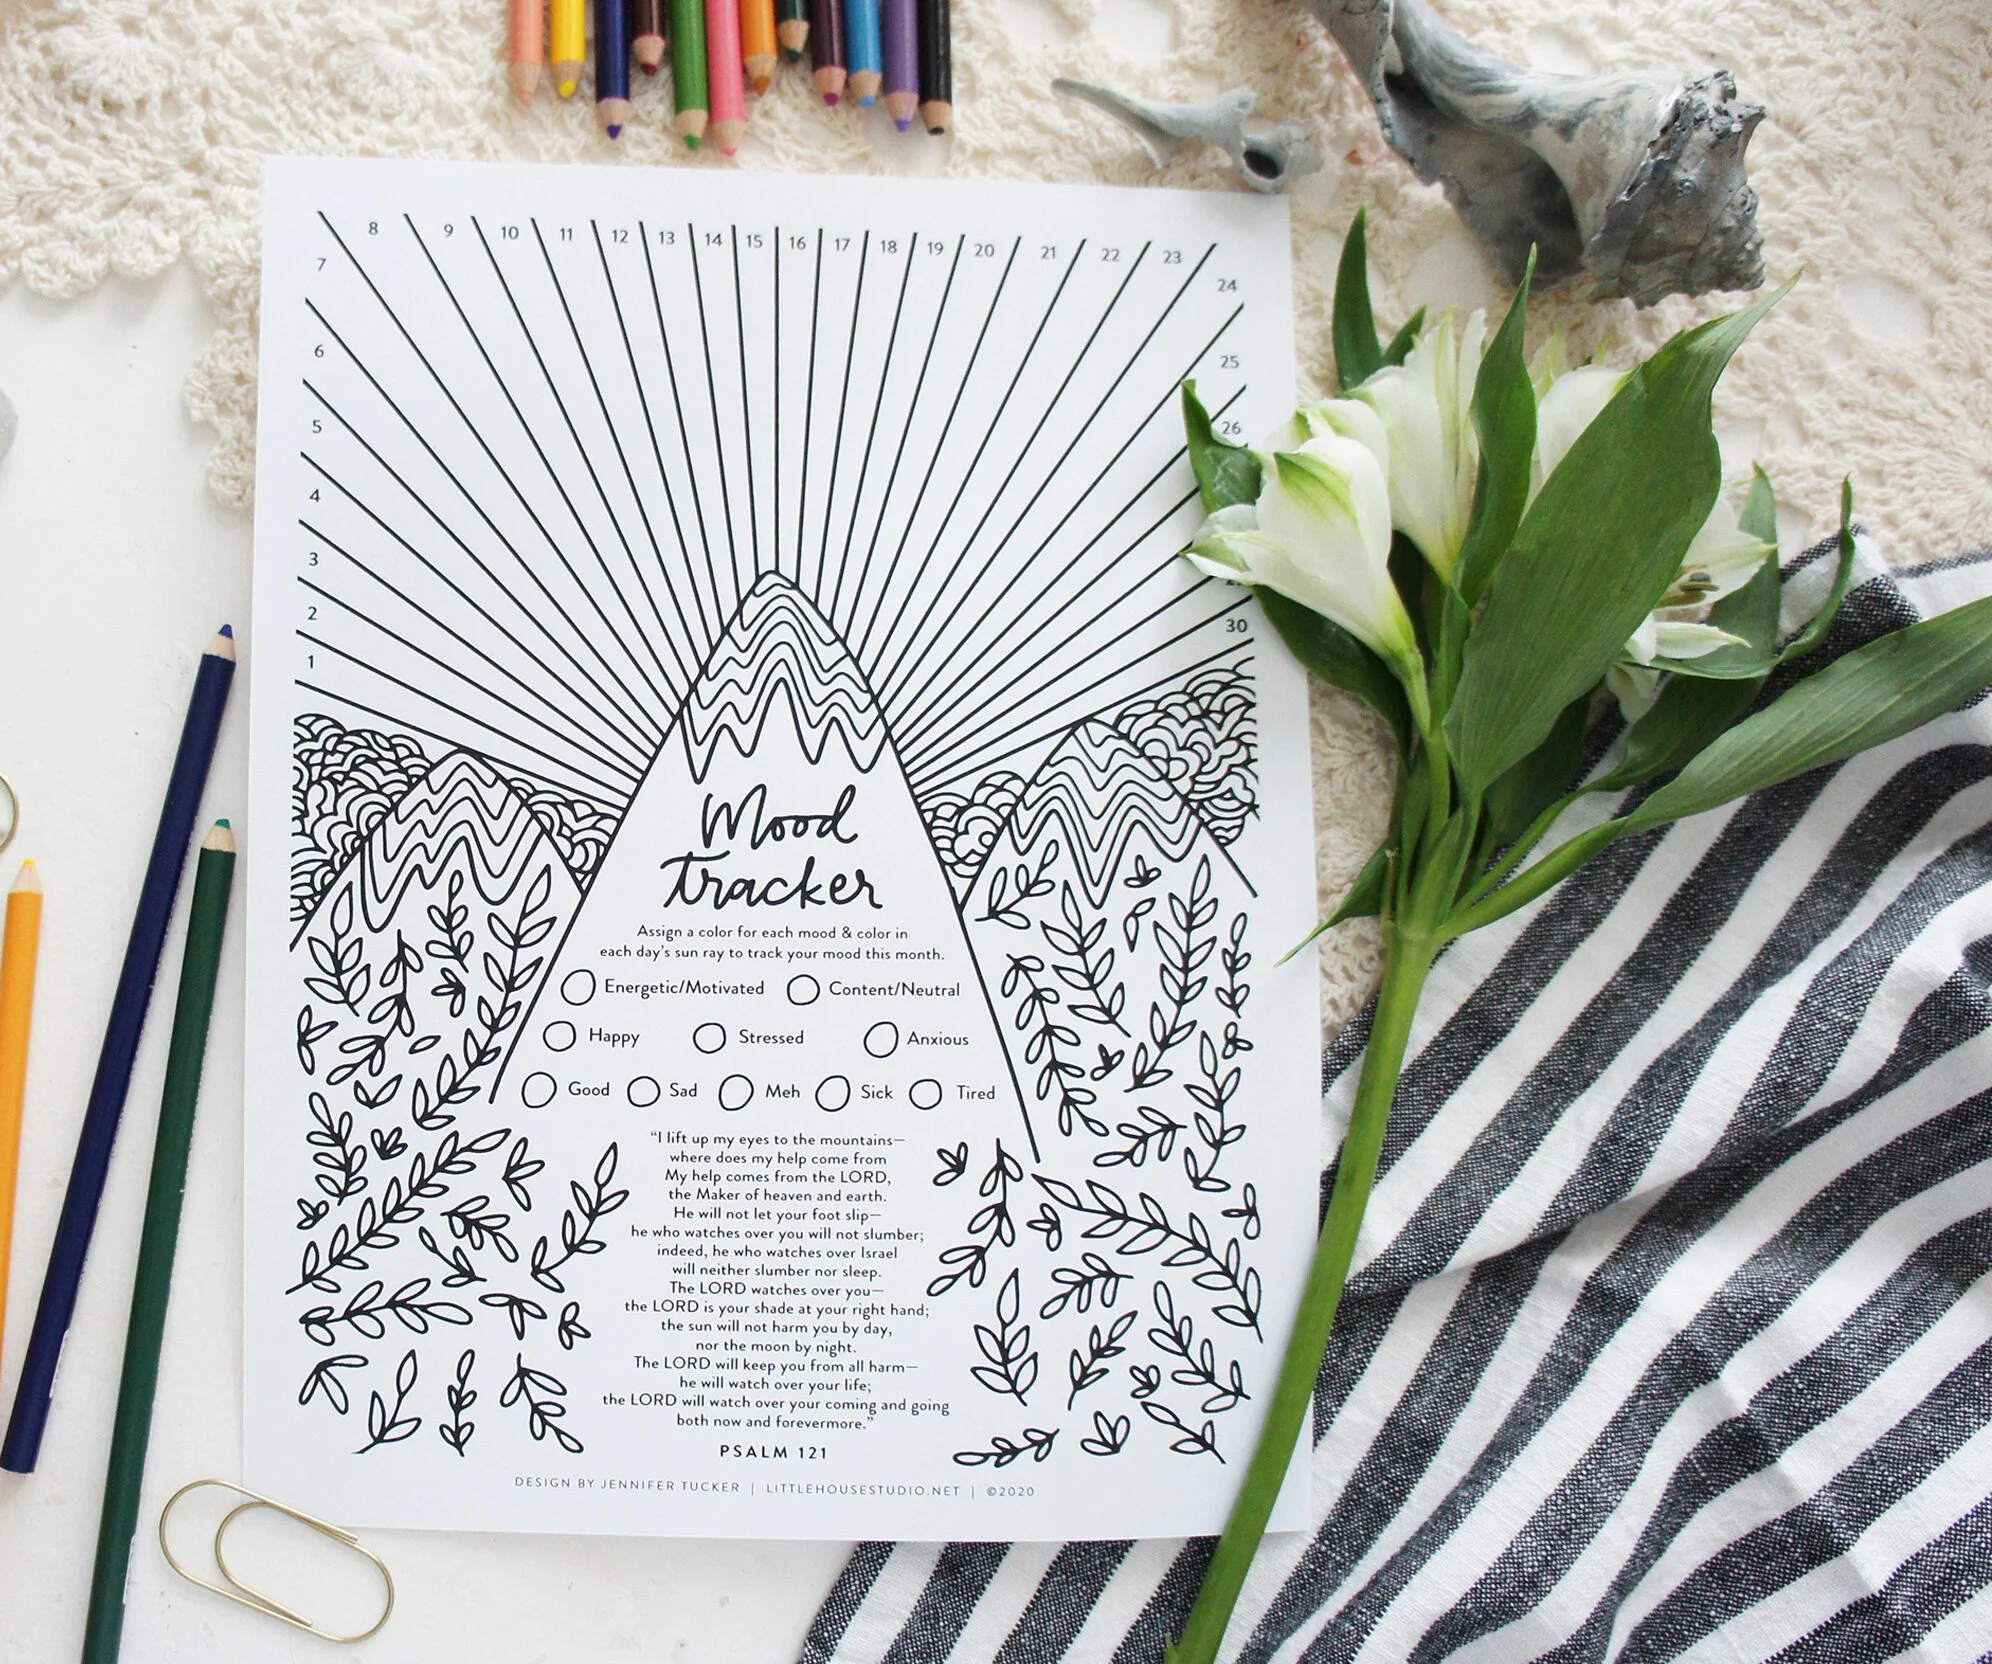 8 9 10 11 12 13 14 15 16 17 18 19 20 21 22 23
7 24
6 25
5 26
4
3
2 30
1
Mood
Tracker
Assign a color for each mood & color in
each day's sun ray to track your mood this month.
Energetic/Motivated Content/Neutral
Happy Stressed Anxious
Good Sad Meh Sick Tired
"I lift up my eyes to the mountains—
where does my help come from
My help comes from the LORD,
the Maker of heaven and earth.
He will not let your foot slip—
he who watches over you will not slumber;
indeed, he who watches over Israel
will neither slumber nor sleep.
The LORD watches over you—
the LORD is your shade at your right hand;
the sun will not harm you by day,
nor the moon by night.
The LORD will keep you from all harm—
he will watch over your life;
the LORD will watch over your coming and going
both now and forevermore."
PSALM 121
DESIGN BY JENNIFER TUCKER | LITTLEHOUSESTUDIO.NET | ©2020